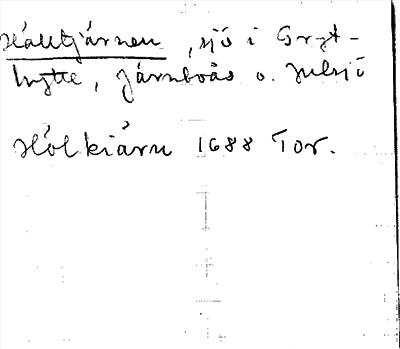 Hålltjärnen, sjö i Gryt-
hytte, Järnboås o. Hulsjö
Hólkiärn 1688 Tor.